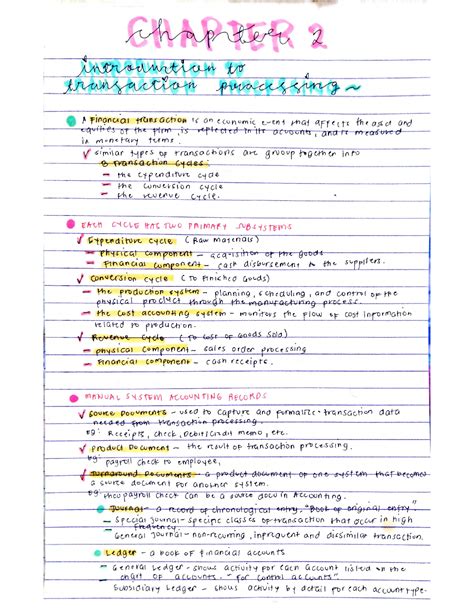 CHAPTER 2
chapter 2
introduction to
transaction processing~
A Financial transaction is an economic event that affects the asset and
equities of the firm, is reflected in its accounts, and is measured
in monetary terms.
✓ similar types of transactions are group together into
3 Transaction Cycles.
- the expenditure cycle
- the conversion cycle
- the revenue cycle.
EACH CYCLE HAS TWO PRIMARY SUBSYSTEMS
✓ Expenditure cycle (Raw Materials)
- Physical component - acquisition of the goods
- Financial component - cash disbursement to the suppliers.
✓ Conversion cycle (To Finished Goods)
- the production system - planning, scheduling, and control of the
physical product through the manufacturing process.
- the cost accounting system - monitors the flow of cost information
related to production.
✓ Revenue cycle (To Cost of Goods Sold)
- physical component - sales order processing
- Financial component - cash receipts.
MANUAL SYSTEM ACCOUNTING RECORDS
✓ Source Documents - used to capture and formalize transaction data
needed from transaction processing.
eg: Receipts, check, Debit/Credit memo, etc.
✓ Product Document - the result of transaction processing.
eg: payroll check to employee,
✓ Turnaround Documents - a product document of one system that becomes
a source document for another system.
eg: payroll check can be a source docu in Accounting.
Journal - a record of chronological entry. "Book of original entry"
- Special Journal - specific classes of transaction that occur in high
frequency.
General Journal - non-recurring, infrequent and dissimilar transaction.
Ledger - a book of financial accounts.
- General Ledger - shows activity for each account listed on the
chart of accounts. - "for control accounts"
Subsidiary Ledger - shows activity by detail for each account type.